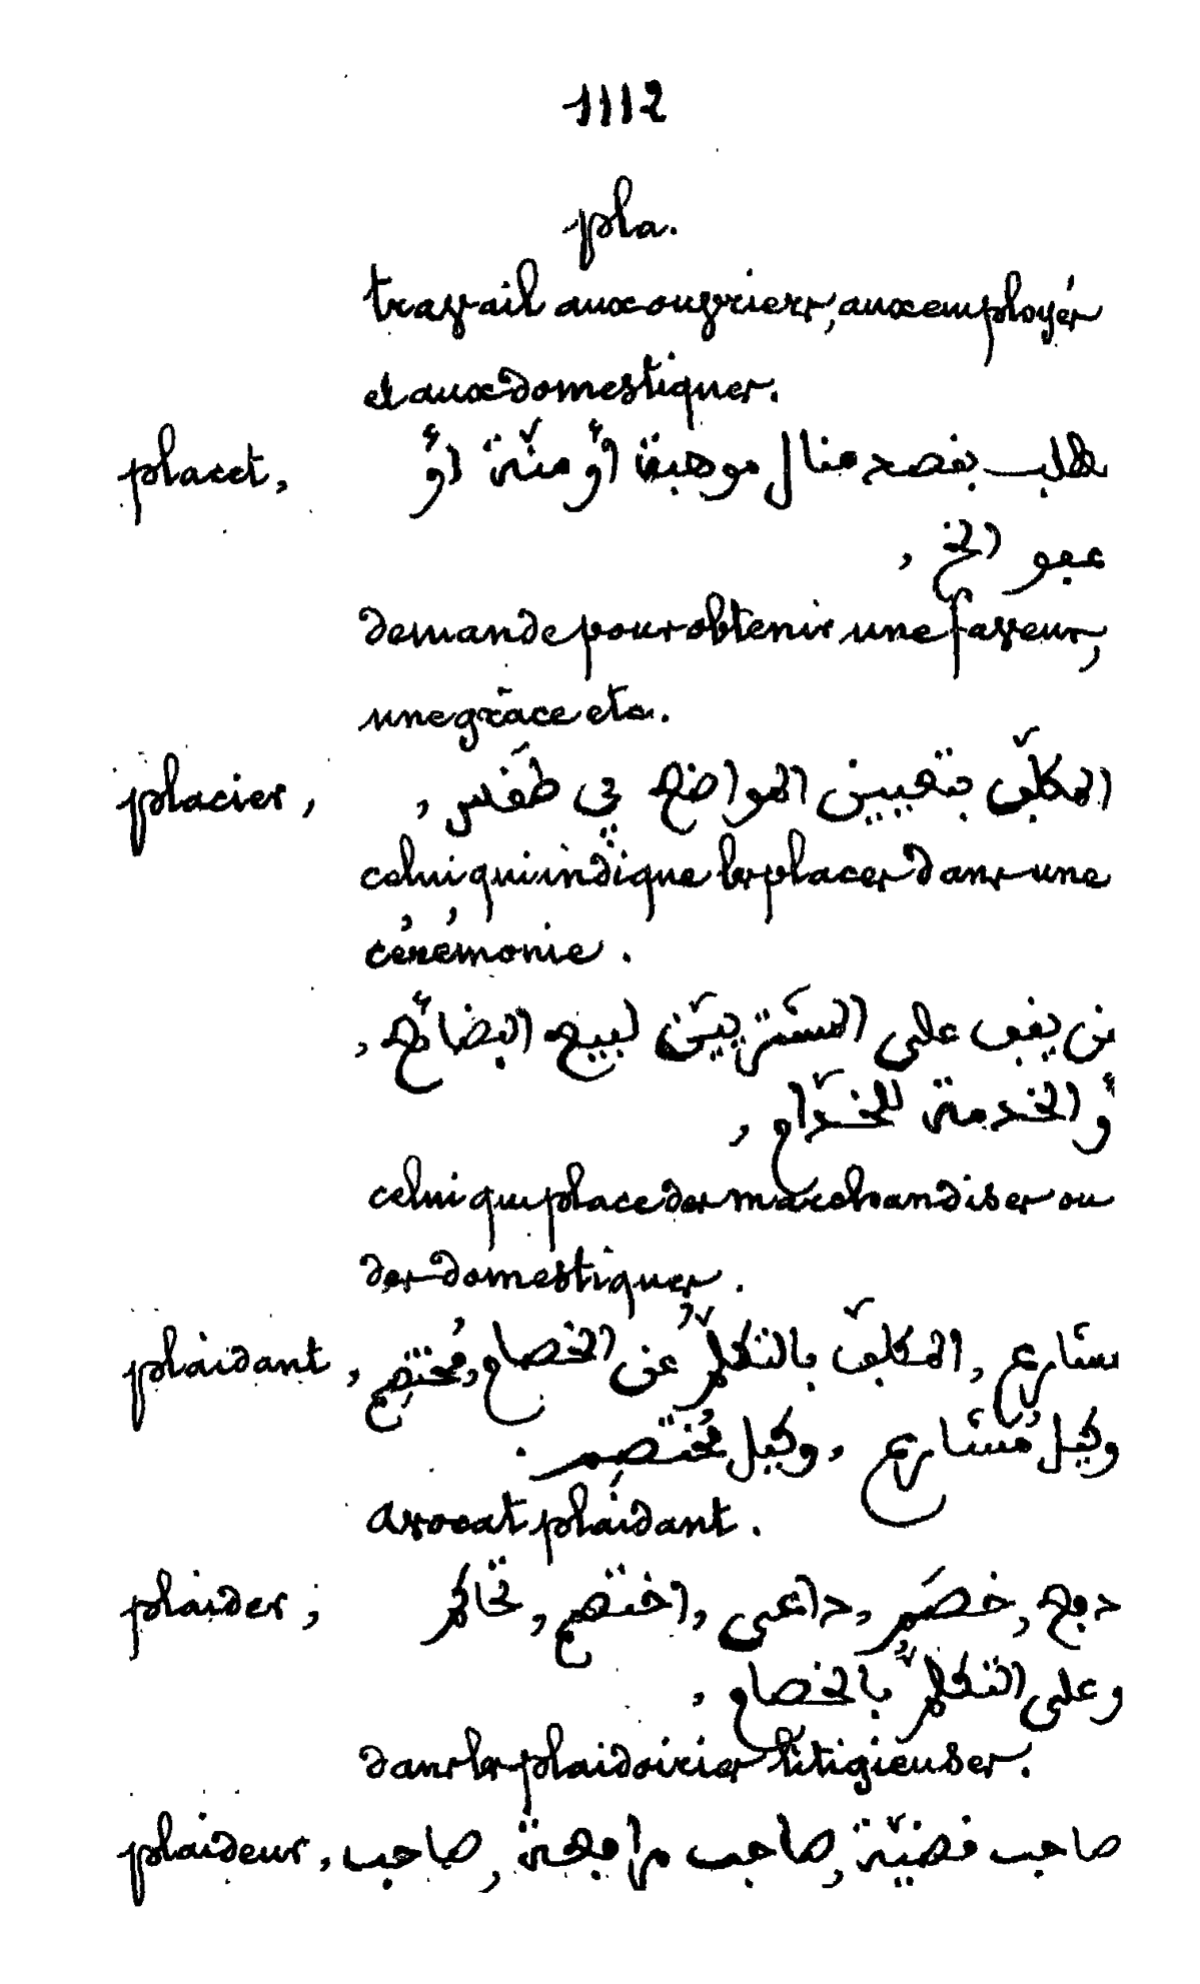 1112
pla.
travail aux ouvriers, aux employés
et aux domestiques.
placet, طلب بقصد منال موهبة أوْ منّة أوْ
عفو الخ ,
demande pour obtenir une faveur,
une grâce etc.
placier, المكلّف بتعيين المواضع في طَقس ,
celui qui indique les places dans une
cérémonie.
من يقف على المشَتريّين لبيع البضائع ,
أو الخدمة للخدّام ,
celui qui place des marchandises ou
des domestiques.
plaidant, مشارع , المكلّف بالتكلّم عن الخصام , مُختصِم ,
وكيل مُشَارع , وكيل مُختصِم .
avocat plaidant.
plaider, دفع , خصَم , داعى , اختصم , تحاكم
وعلى التكلّم بالخصام ,
dans les plaidoiries litigieuses.
plaideur, صاحب قضيّة , صاحب مرافعة , صاحب